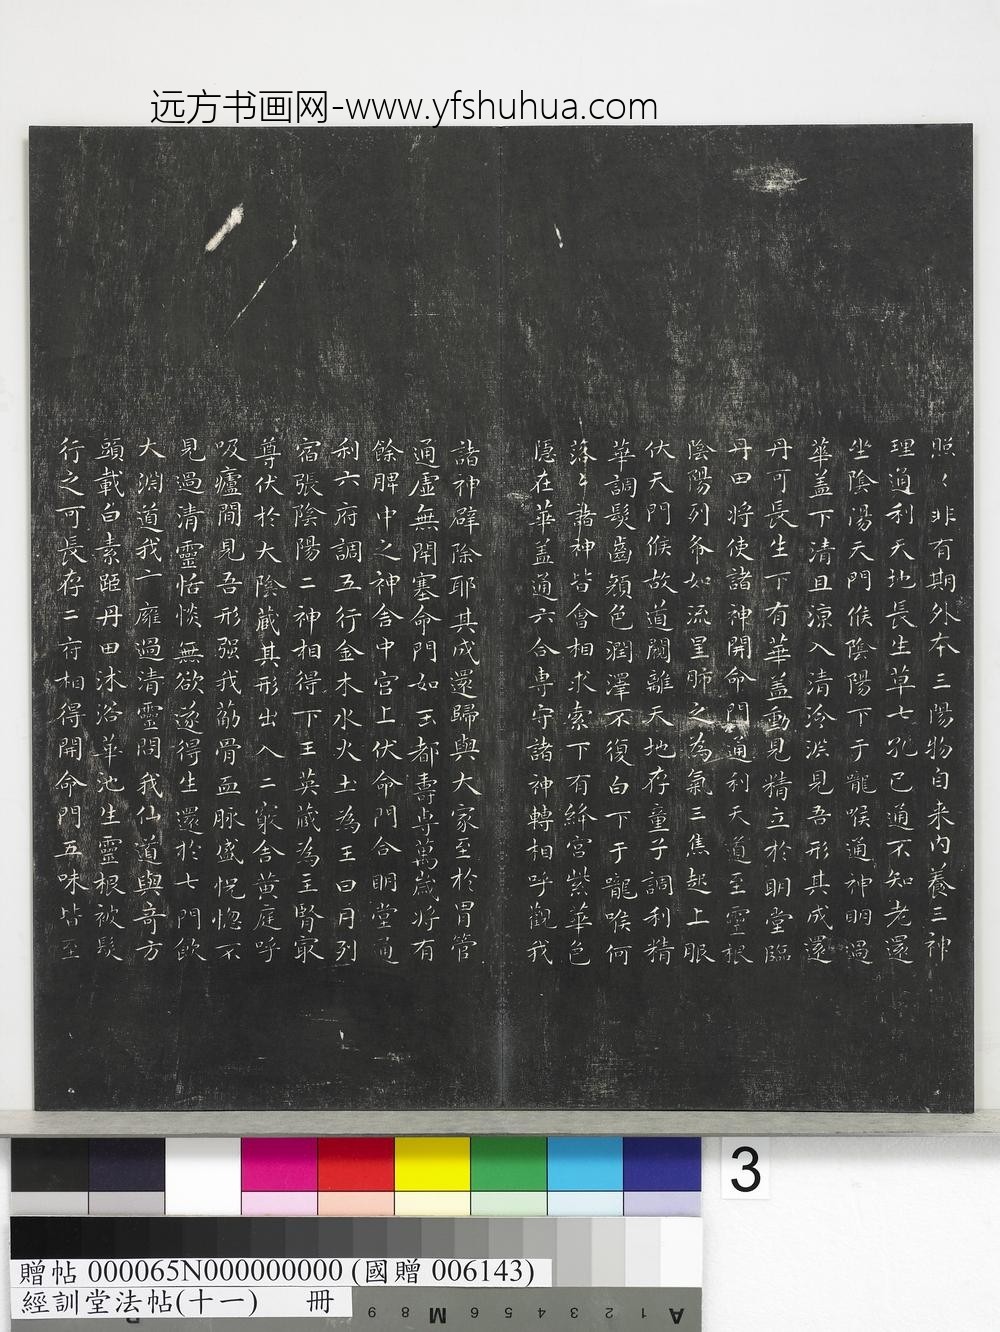 远方书画网-www.yfshuhua.com
照〻非有期外本三陽物自来内養三神
理通利天地長生草七孔已通不知老還
坐陰陽天門候陰陽下于嚨喉通神明過
華盖下清且凉入清泠淵見吾形其成還
丹可長生下有華盖動見精立於明堂臨
丹田将使諸神開命門通利天道至靈根
陰陽列布如流星肺之為氣三焦起上服
伏天門候故道闚離天地存童子調利精
華調髮齒顏色潤澤不復白下于嚨喉何
落〻諸神皆會相求索下有絳宮紫華色
隱在華盖通六合専守諸神轉相呼觀我
諸神辟除耶其成還歸與大家至於胃管
通虛無閉塞命門如玉都壽専萬歲将有
餘脾中之神舍中宮上伏命門合明堂通
利六府調五行金木水火土為王日月列
宿張陰陽二神相得下王英藏為主腎寂
尊伏於大陰藏其形出入二竅舍黄庭呼
吸廬間見吾形强我筋骨血脉盛恍惚不
見過清靈恬惔無欲遂得生還於七門飲
大淵道我亡廱過清靈問我仙道與奇方
頭載白素距丹田沐浴華池生靈根被髮
行之可長存二府相得開命門五味皆至
3
贈帖 000065N000000000 (國贈 006143)
經訓堂法帖(十一) 冊
9 8 M 6 5 4 3 2 1 A